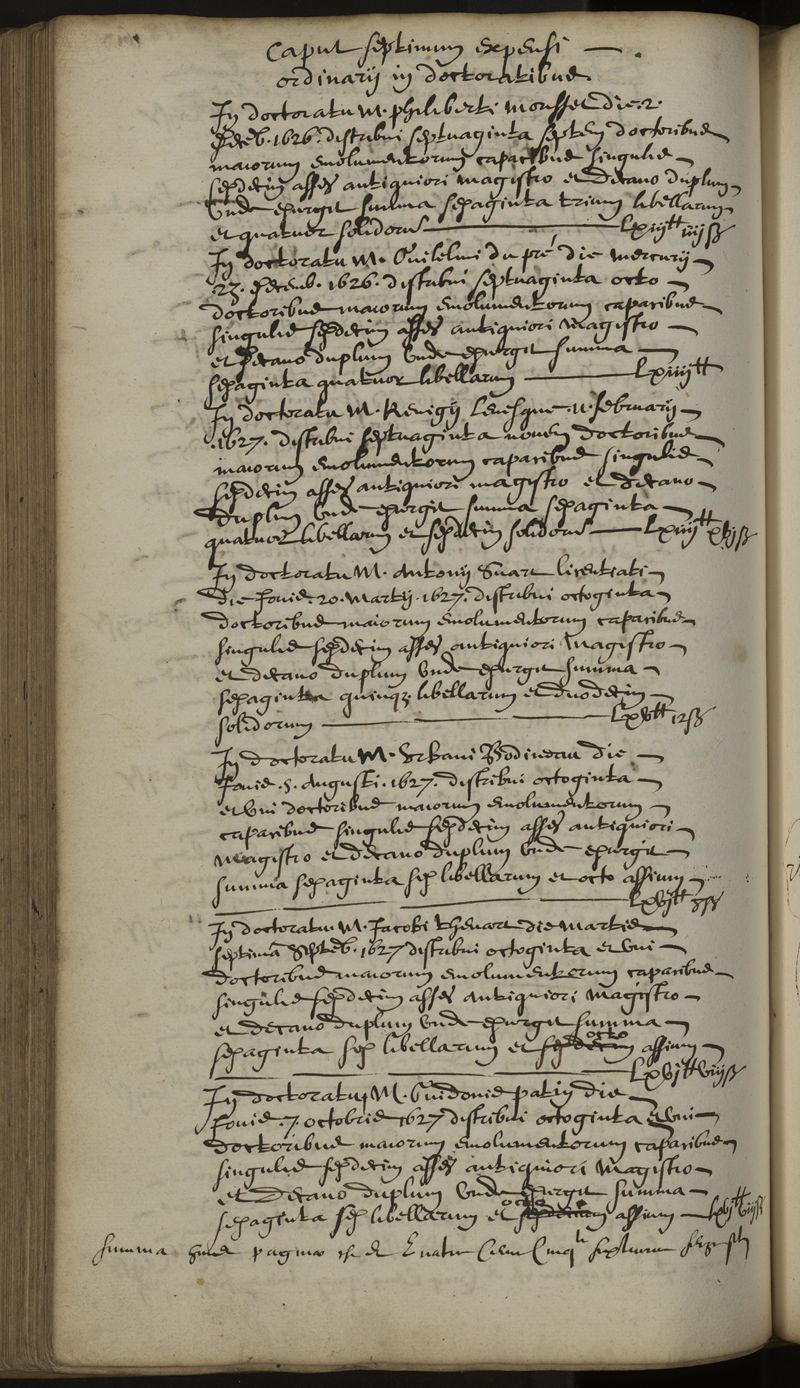 Caput septimum expensi
ordinarij in doctoratibus
In doctoratu M. philiberti Morisset die 2.
Decēb. 1626. distribui septuaginta septem doctoribus
maiorum emolumentorum capacibus singulis
sexdecim asses antiquiori magistro et decano duplum
unde exurgit summa sexaginta trium libellarum
et quatuor solidorum lxiij tt iiij ß
In doctoratu M. Guilelmi du pré die mercurij
23. decemb. 1626. distribui septuaginta octo
doctoribus maiorum emolumentorum capacibus
singulis sexdecim asses antiquiori magistro
et decano duplum unde exurgit summa
sexaginta quatuor libellarum lxiiij tt
In doctoratu M. Remigij Levesque 11. februarij
1627. distribui septuaginta novem doctoribus
maiorum emolumentorum capacibus singulis
sexdecim asses antiquiori magistro et decano
duplum unde exurgit summa sexaginta
quatuor libellarum et sexdecim solidorum lxiiij tt xvj ß
In doctoratu M. Antonij licentiati
die Jovis 20. Martij 1627. distribui octoginta
doctoribus maiorum emolumentorum capacibus
singulis sexdecim asses antiquiori magistro
et decano duplum unde exurgit summa
sexaginta quinq; libellarum et duodecim
solidorum lxv tt 12 ß
In doctoratu M. Urbani Bodineau die
Jovis 5. Augusti 1627. distribui octoginta
et uni doctoribus maiorum emolumentorum
capacibus singulis sexdecim asses antiquiori
magistro et decano duplum unde exurgit
summa sexaginta sex libellarum et octo assium
lxvj tt 8 ß
In doctoratu M. Jacobi thevart die Martis
septima Septēb. 1627 distribui octoginta et uni
doctoribus maiorum emolumentorum capacibus
singulis sexdecim asses antiquiori magistro
et decano duplum unde exurgit summa
sexaginta sex libellarum et octo assium
lxvj tt viij ß
In doctoratu M. Guidonis patin die
Jovis 7. octobris 1627 distribui octoginta et uni
doctoribus maiorum emolumentorum capacibus
singulis sexdecim asses antiquiori magistro
et decano duplum unde exurgit summa
sexaginta sex libellarum et octo assium lxvj tt viij ß
summa huius paginae est